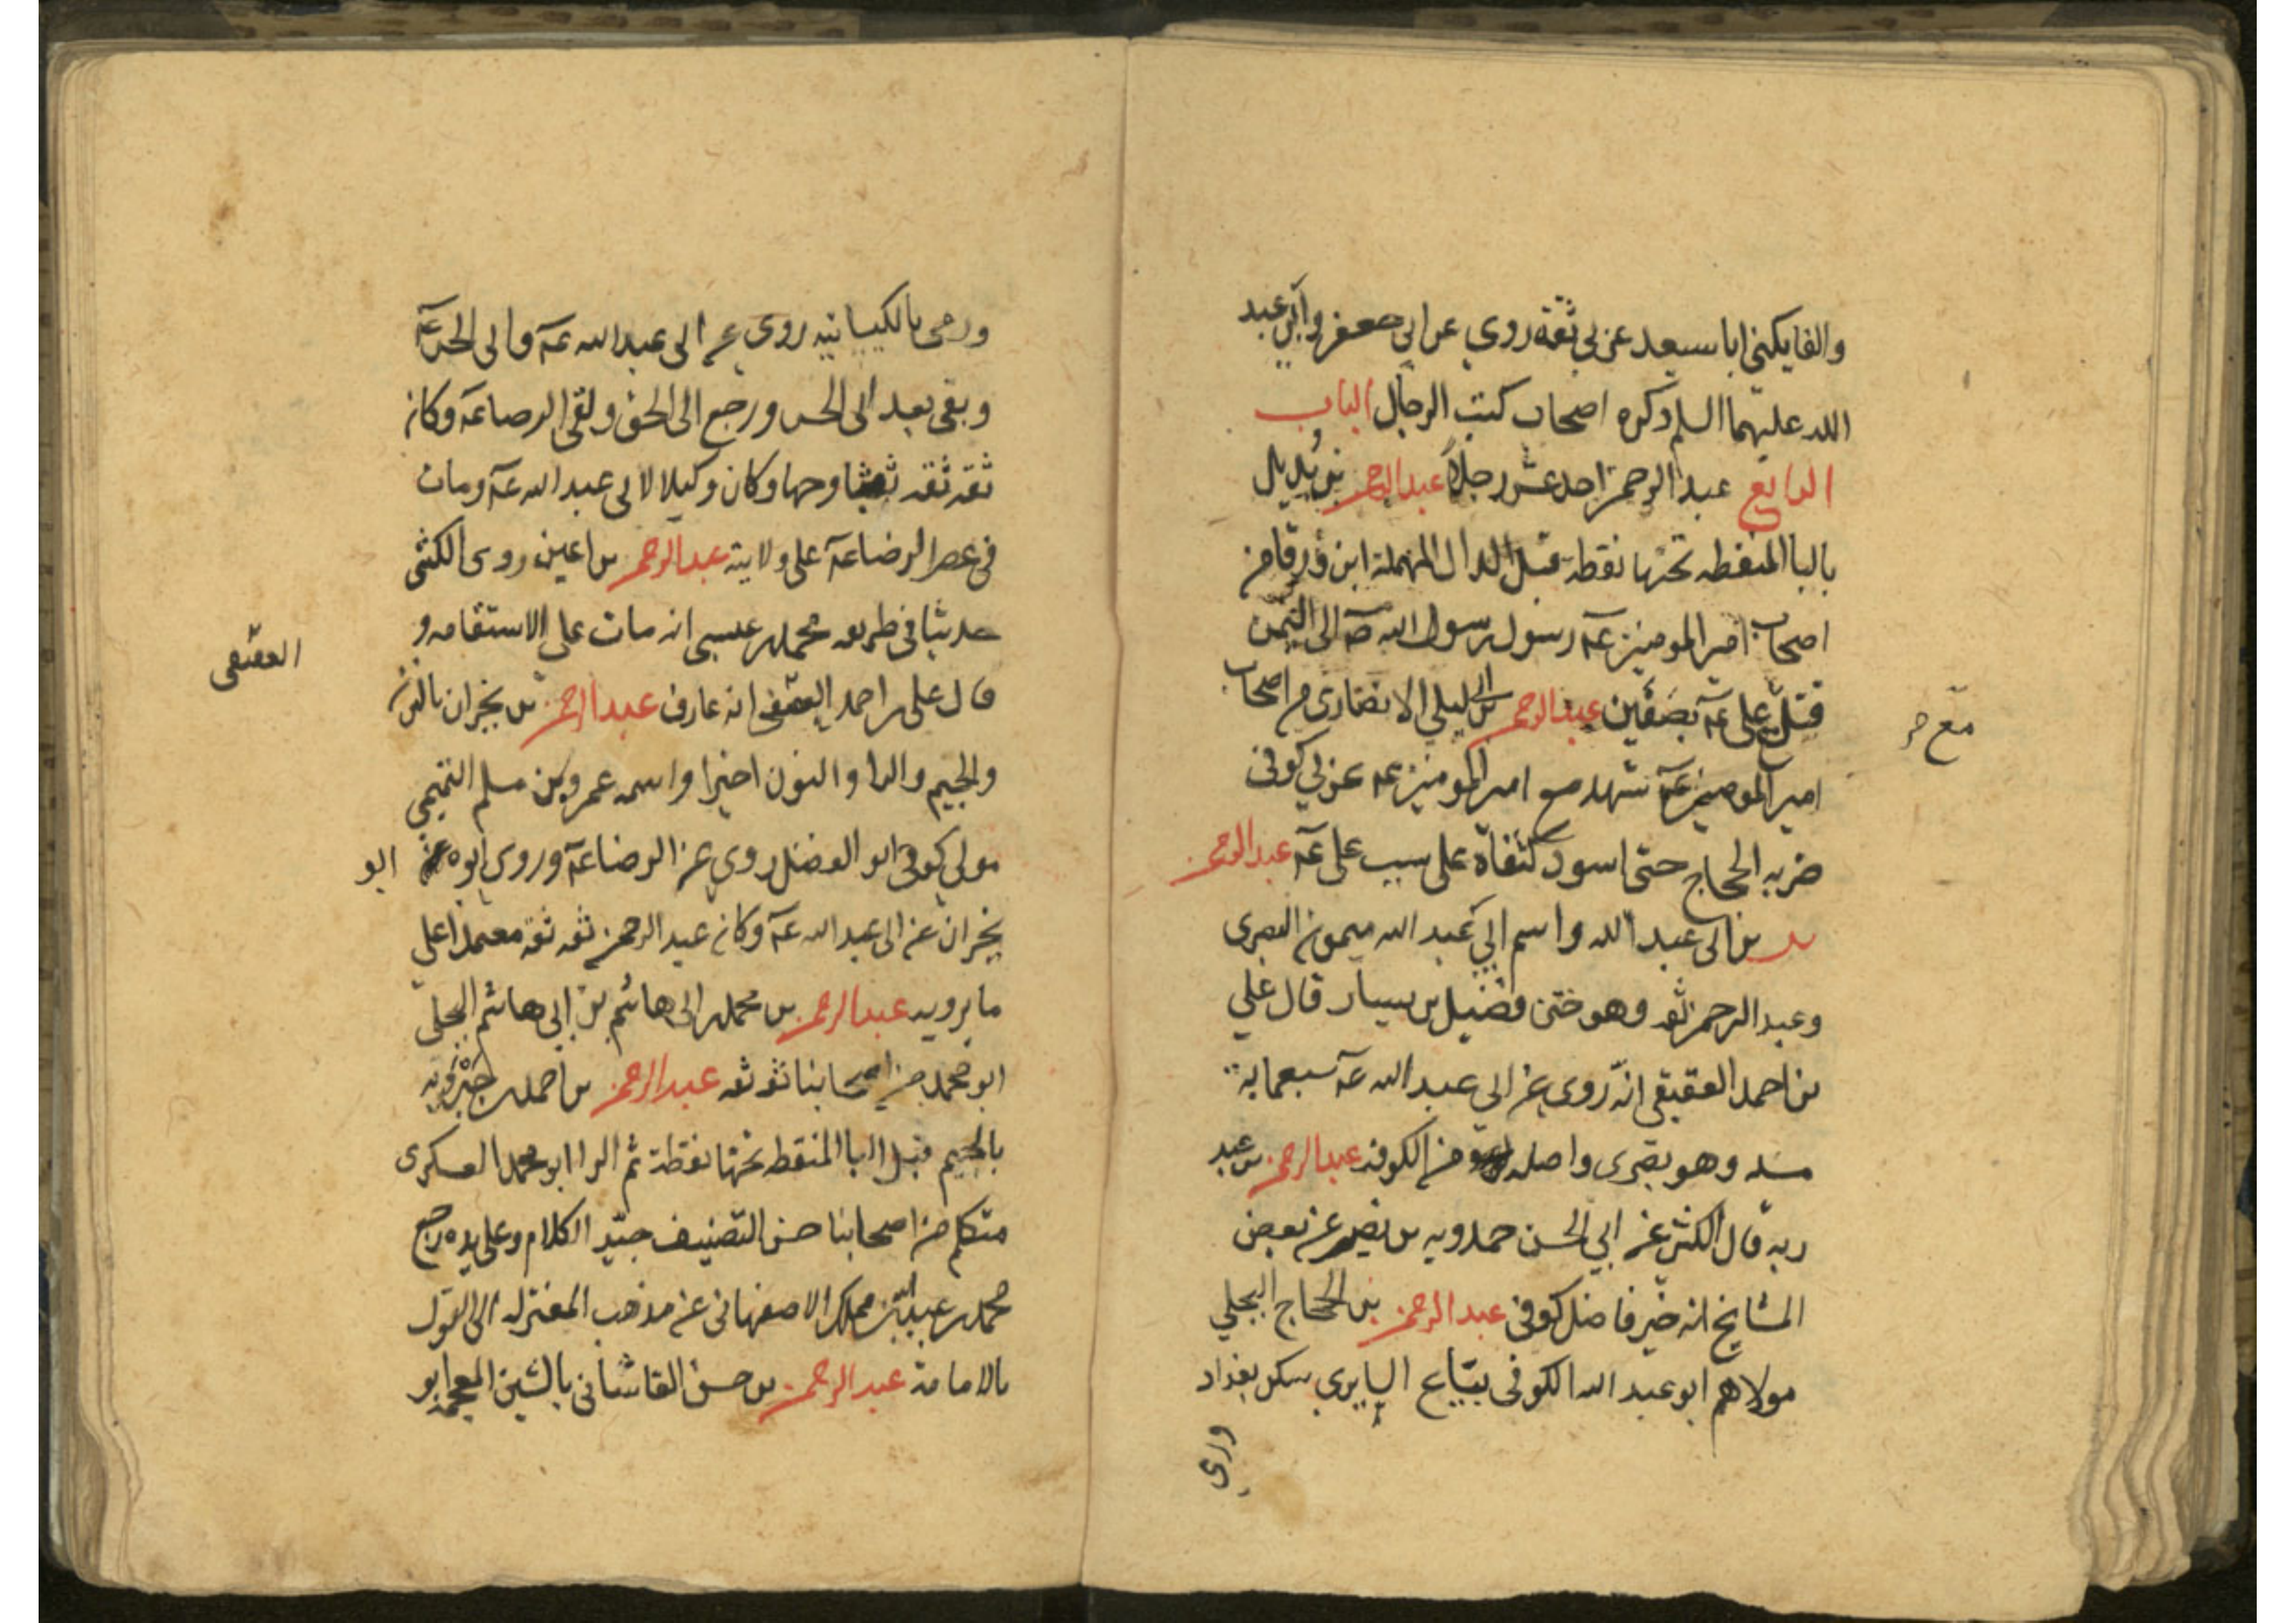 والفا يكنى ابا سعيد عربي ثقة روى عن ابي جعفر وابي عبد
الله عليهما السلم ذكره اصحاب كتب الرجال الباب
الرابع عبد الرحمن احد عشر رجلاً عبد الرحمن بن بُديل
بالبا المنقطه تحتها نقطة قبل الدال المهملة ابن ورقا من
اصحاب امير المومنين عم رسول رسول الله صه الى اليمن
قتل مع علي عم بصفين عبد الرحمن بن ابي ليلى الانصاري من اصحاب
مع
امير المومنين عم شهد مع امير المومنين عم عربي كوفى
ضربه الحجاج حتى اسود كتفاه على سب على عم عبد الرحمن
بن ابى عبد الله واسم ابي عبد الله ميمون البصرى
وعبد الرحمن ثقه وهو ختن فضيل بن يسار قال علي
بن احمد العقيقي انه روى عن ابي عبد الله عم سبعمايه
مسله وهو بصرى واصله من الكوفه عبد الرحمن بن عبد
ربه قال الكشى عن ابي الحسن حمدويه بن نصير عن بعض
المشايخ انه خيّر فاضل كوفى عبد الرحمن بن الحجاج البجلي
مولاهم ابو عبد الله الكوفى بيّاع السابري سكن بغداد
ورمى
ورمى بالكيسانيه روى عن ابى عبد الله عم وابى الحسن عم
وبقى بعد ابى الحسن ورجع الى الحق ولقى الرضا عم وكان
ثقه ثقه ثبتا وجها وكان وكيلا لابى عبد الله عم ومات
فى عصر الرضا عم على ولايته عبد الرحمن بن اعين روى الكشى
حديثا فى طريقه محمد بن عيسى انه مات على الاستقامه و
قال على بن احمد العقيقى انه عارف عبد الرحمن بن نجران بالنون
العقيقى
والجيم والرا والنون اخيرا واسمه عمرو بن مسلم التميمي
مولى كوفى ابو الفضل روى عن الرضا عم وروى ابوه
ابو
نجران عن ابى عبد الله عم وكان عبد الرحمن ثقه ثقة معتمدا على
ما يرويه عبد الرحمن بن محمد بن ابى هاشم بن ابي هاشم البجلى
ابو محمد من اصحابنا ثقه ثقه عبد الرحمن بن احمد بن جبرويه
بالجيم قبل البا المنقطه تحتها نقطة ثم الرا ابو محمد العسكرى
متكلم من اصحابنا حسن التصنيف جيّد الكلام وعلى يده رجع
محمد بن عبد الله بن مملك الاصفهانى عن مذهب المعتزله الى القول
بالامامة عبد الرحمن بن حسن القاشانى بالشين المعجمه ابو